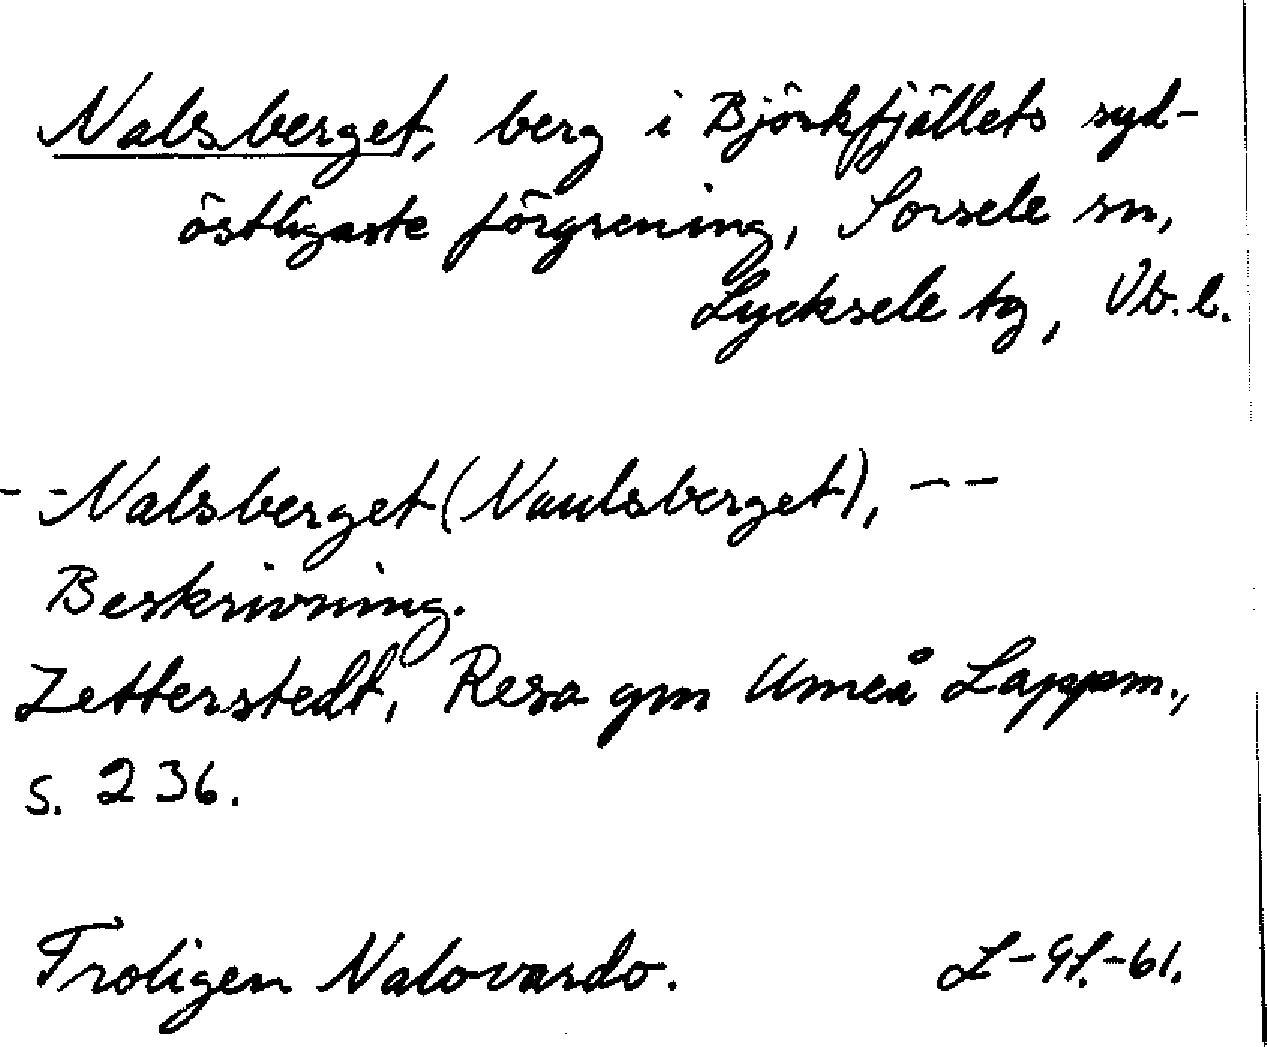 Nalsberget, berg i Björkfjällets syd-
östligaste förgrening, Sorsele sn,
Lycksele tg, Vb. l.
- - Nalsberget (Naulsberget), - -
Beskrivning.
Zetterstedt, Resa gm Umeå Lappm.,
s. 236.
Troligen Nalovardo.